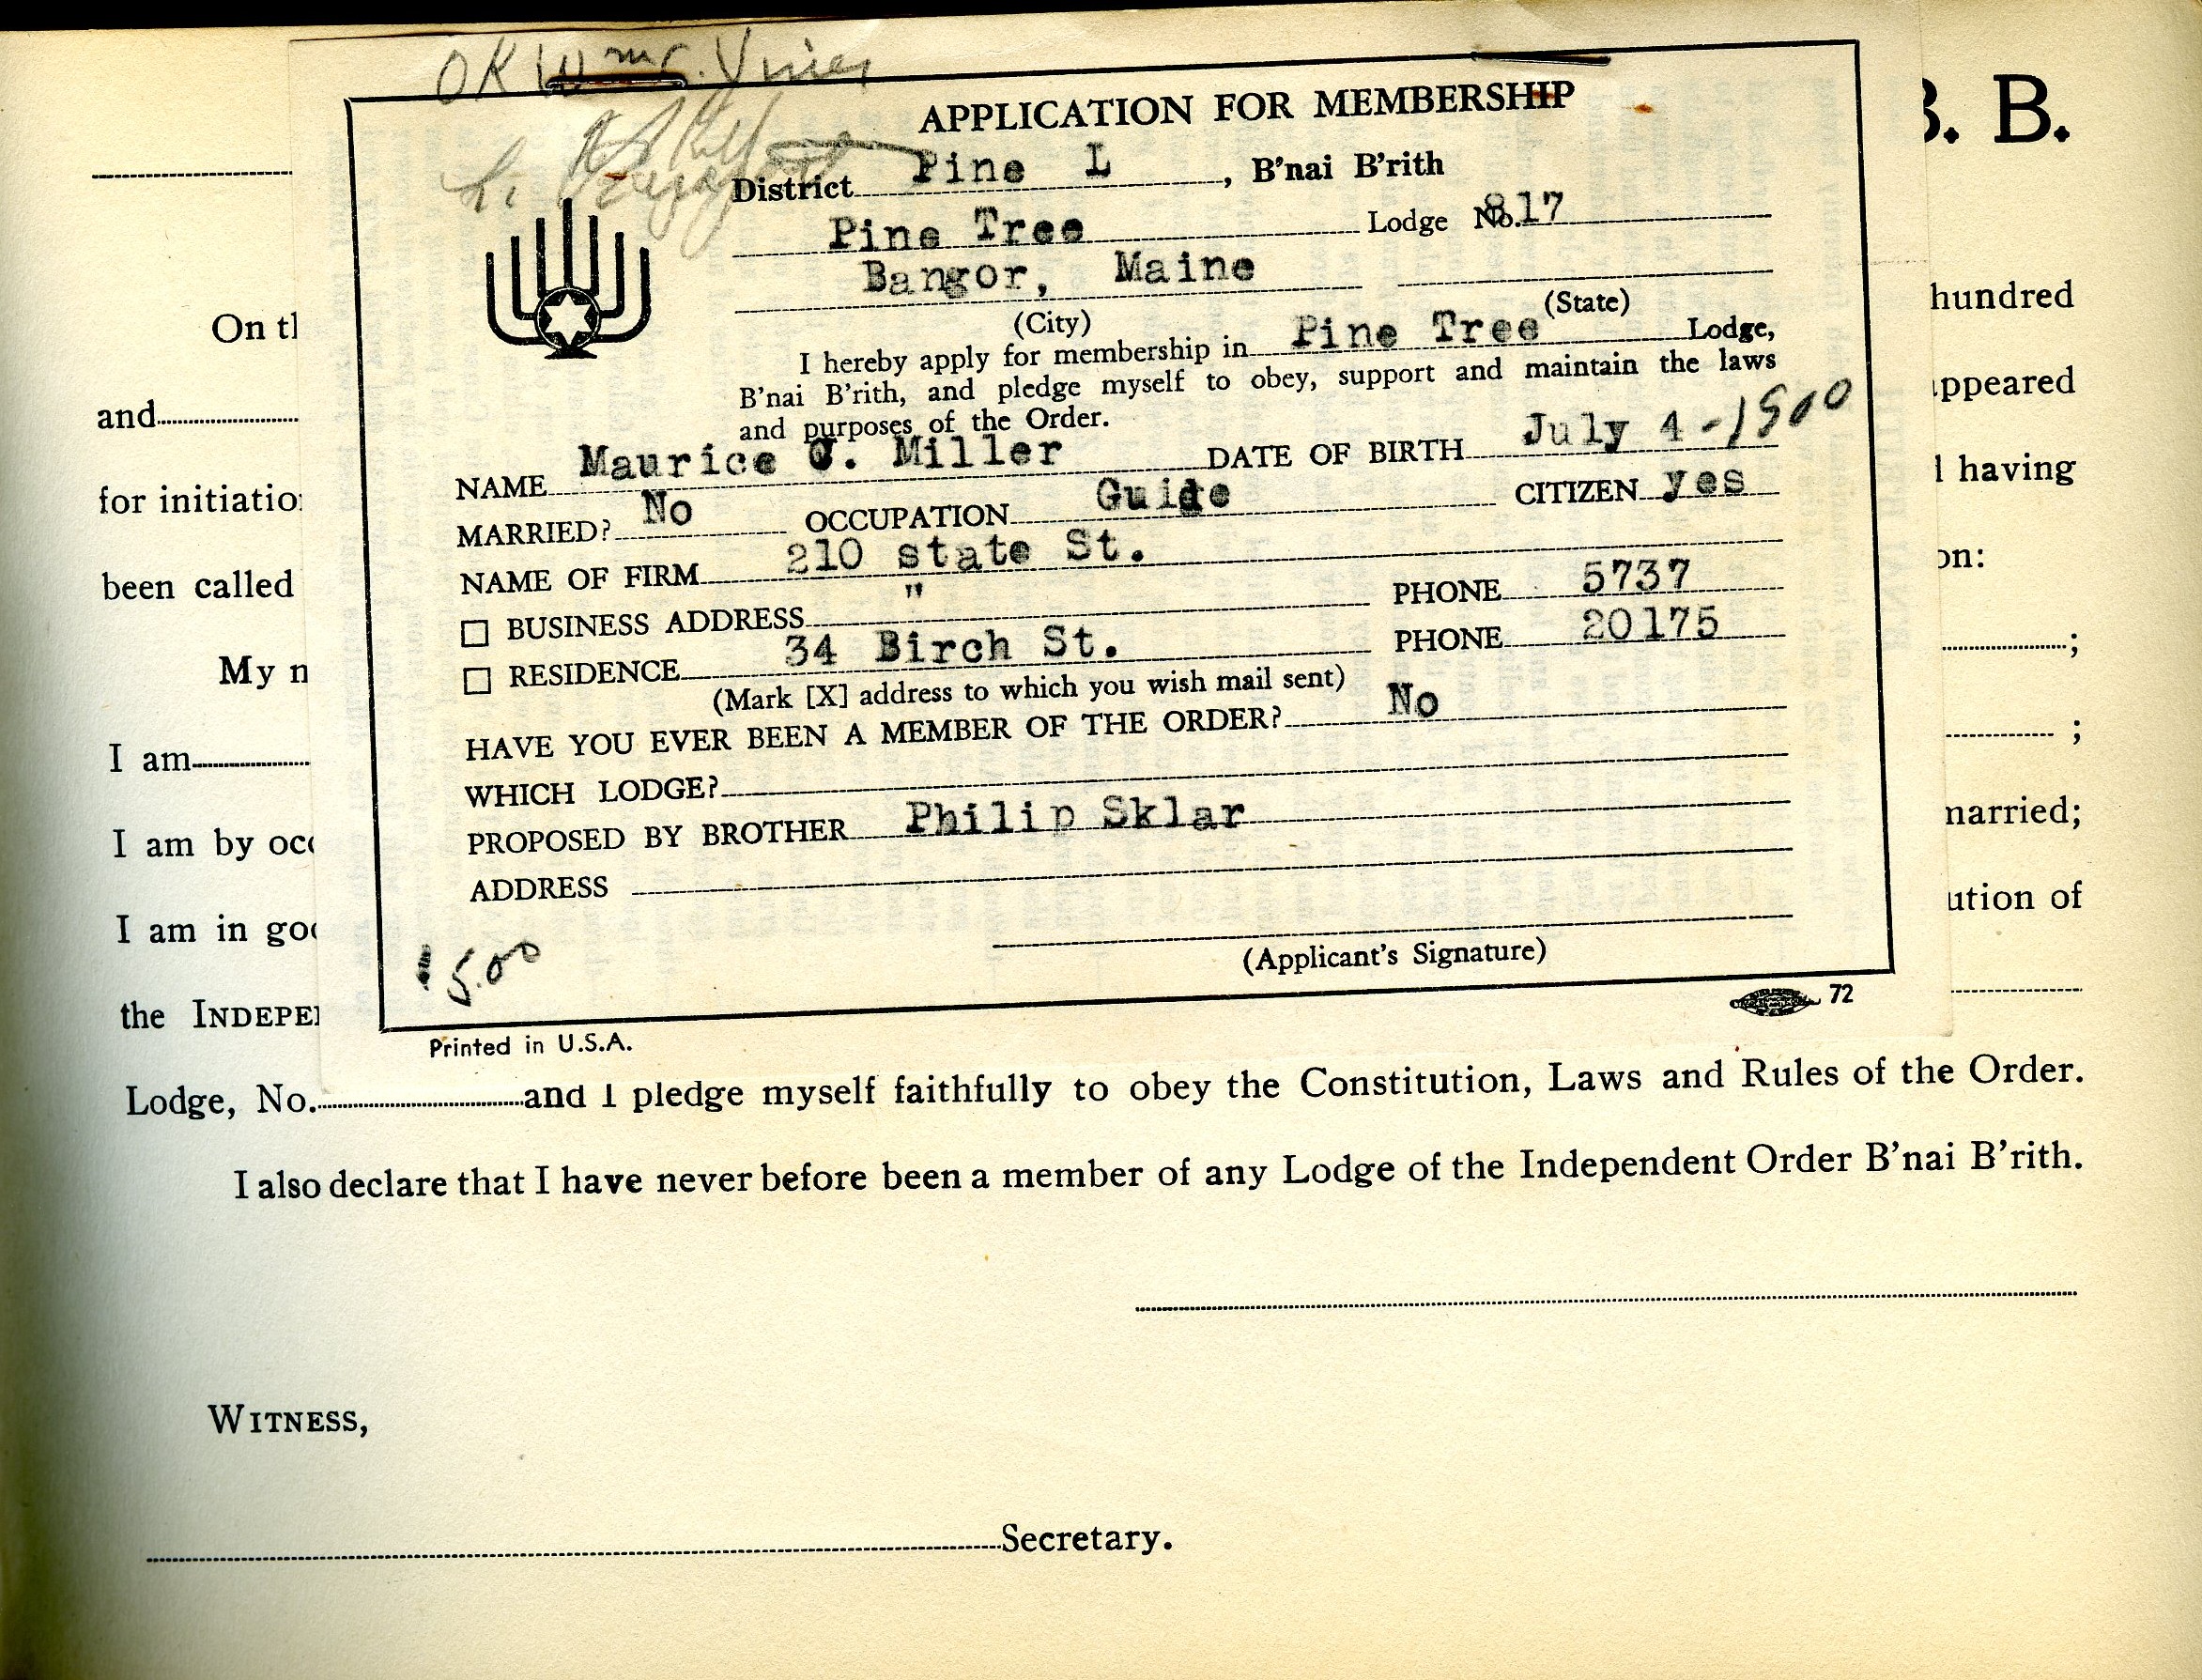 OK Wm C.
B. B.
APPLICATION FOR MEMBERSHIP
District Pine L, B'nai B'rith
Pine Tree Lodge No. 817
Bangor, Maine
(City) (State)
I hereby apply for membership in Pine Tree Lodge,
B'nai B'rith, and pledge myself to obey, support and maintain the laws
and purposes of the Order.
NAME Maurice Miller DATE OF BIRTH July 4-1900
MARRIED? No OCCUPATION Guide CITIZEN yes
NAME OF FIRM 210 state St.
BUSINESS ADDRESS " PHONE 5737
RESIDENCE 34 Birch St. PHONE 20175
(Mark [X] address to which you wish mail sent)
HAVE YOU EVER BEEN A MEMBER OF THE ORDER? No
WHICH LODGE?
PROPOSED BY BROTHER Philip Sklar
ADDRESS
$5.00
(Applicant's Signature)
72
Printed in U.S.A.
On th
hundred
and
appeared
for initiation
having
been called
on:
My n
;
I am
;
I am by occ
married;
I am in goo
ution of
the INDEPE
Lodge, No. and I pledge myself faithfully to obey the Constitution, Laws and Rules of the Order.
I also declare that I have never before been a member of any Lodge of the Independent Order B'nai B'rith.
WITNESS,
Secretary.